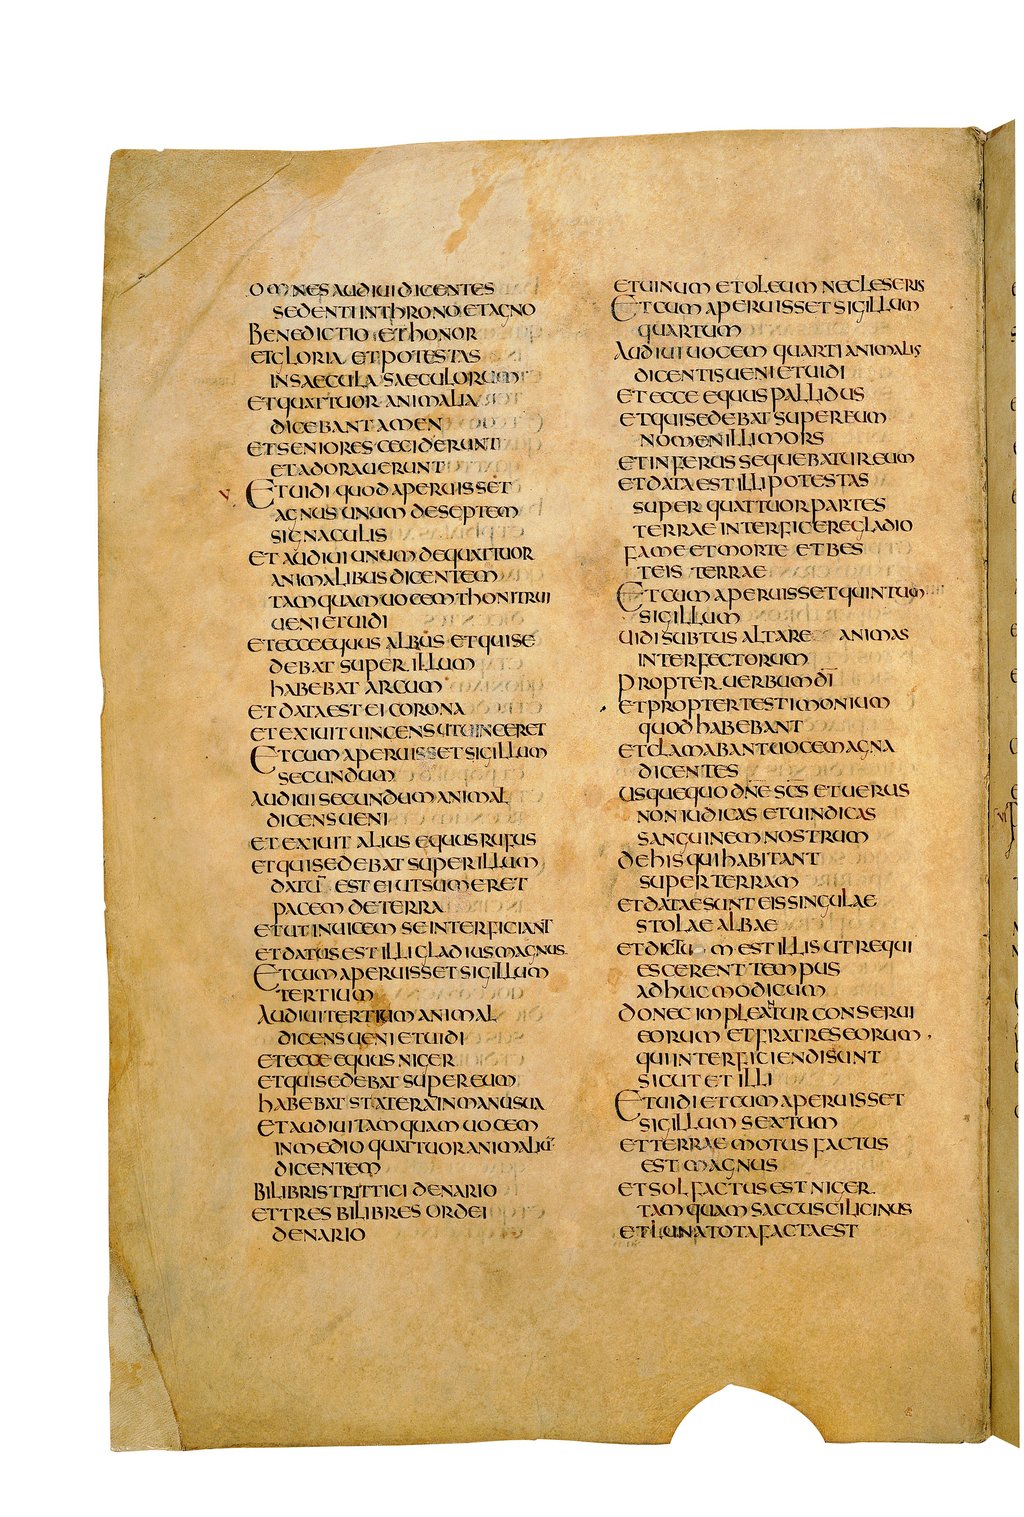 OMNES AUDIUI DICENTES
SEDENTI IN THRONO ET AGNO
BENEDICTIO ET HONOR
ET GLORIA ET POTESTAS
IN SAECULA SAECULORUM
ET QUATTUOR ANIMALIA
DICEBANT AMEN
ET SENIORES CECIDERUNT
ET ADORAUERUNT
V
ET UIDI QUOD APERUISSET
AGNUS UNUM DE SEPTEM
SIGNACULIS
ET AUDIUI UNUM DE QUATTUOR
ANIMALIBUS DICENTEM
TAMQUAM UOCEM THONITRUI
UENI ET UIDI
ET ECCE EQUUS ALBUS ET QUI SE
DEBAT SUPER ILLUM
HABEBAT ARCUM
ET DATA EST EI CORONA
ET EXIUIT UINCENS UT UINCERET
ET CUM APERUISSET SIGILLUM
SECUNDUM
AUDIUI SECUNDUM ANIMAL
DICENS UENI
ET EXIUIT ALIUS EQUUS RUFUS
ET QUI SEDEBAT SUPER ILLUM
DATŪ EST EI UT SUMERET
PACEM DE TERRA
ET UT INUICEM SE INTERFICIANT
ET DATUS EST ILLI GLADIUS MAGNUS
ET CUM APERUISSET SIGILLUM
TERTIUM
AUDIUI TERTIUM ANIMAL
DICENS UENI ET UIDI
ET ECCE EQUUS NIGER
ET QUI SEDEBAT SUPER EUM
HABEBAT STATERA IN MANU SUA
ET AUDIUI TAMQUAM UOCEM
IN MEDIO QUATTUOR ANIMALIŪ
DICENTEM
BILIBRIS TRITTICI DENARIO
ET TRES BILIBRES ORDEI
DENARIO
ET UINUM ET OLEUM NE CLESERIS
ET CUM APERUISSET SIGILLUM
QUARTUM
AUDIUI UOCEM QUARTI ANIMALIS
DICENTIS UENI ET UIDI
ET ECCE EQUUS PALLIDUS
ET QUI SEDEBAT SUPER EUM
NOMEN ILLI MORS
ET INFERUS SEQUEBATUR EUM
ET DATA EST ILLI POTESTAS
SUPER QUATTUOR PARTES
TERRAE INTERFICERE GLADIO
FAME ET MORTE ET BES
TEIS TERRAE
ET CUM APERUISSET QUINTUM
SIGILLUM
UIDI SUBTUS ALTARE ANIMAS
INTERFECTORUM
PROPTER UERBUM D̄Ī
ET PROPTER TESTIMONIUM
QUOD HABEBANT
ET CLAMABANT UOCE MAGNA
DICENTES
USQUEQUO D̄N̄E S̄C̄S̄ ET UERUS
NON IUDICAS ET UINDICAS
SANGUINEM NOSTRUM
DE HIS QUI HABITANT
SUPER TERRAM
ET DATAE SUNT EIS SINGULAE
STOLAE ALBAE
ET DICTUM EST ILLIS UT REQUI
ESCERENT TEMPUS
ADHUC MODICUM
DONEC IMPLEANTUR CONSERUI
EORUM ET FRATRES EORUM
QUI INTERFICIENDI SUNT
SICUT ET ILLI
ET UIDI ET CUM APERUISSET
SIGILLUM SEXTUM
ET TERRAE MOTUS FACTUS
EST MAGNUS
ET SOL FACTUS EST NIGER
TAMQUAM SACCUS CILICINUS
ET LUNA TOTA FACTA EST